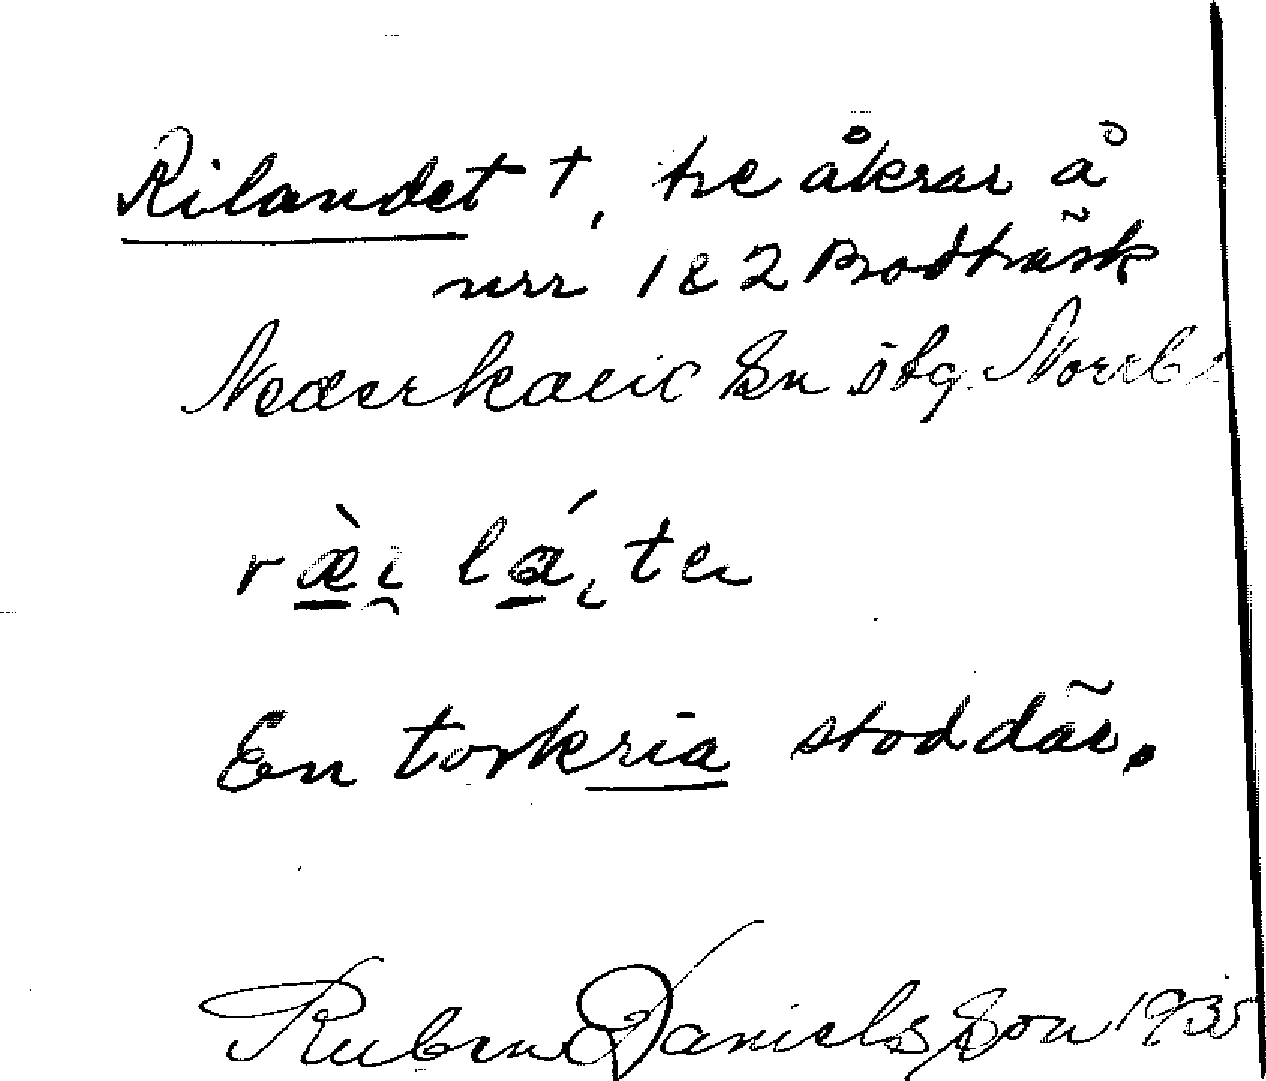 Rilandet †, tre åkrar å
nrr 1 & 2 Brodträsk
Nederkalix sn stg. Norrb
ræi la, ten
En torkria stod där.
Ruben Danielsson 1935